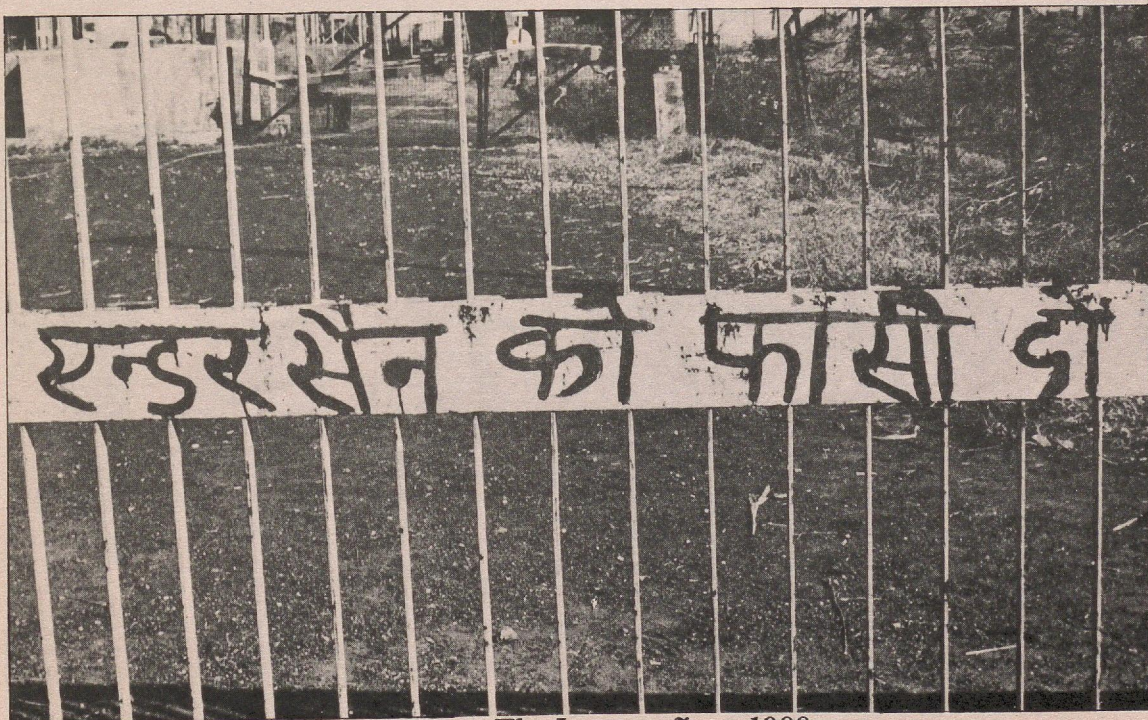 एन्डरसन को फासी दो